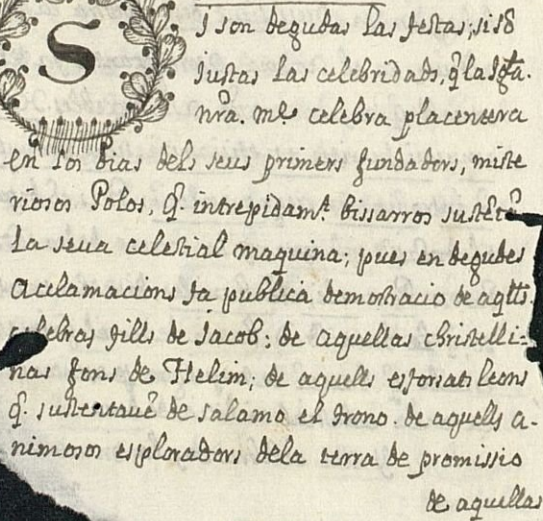 Si son degudas las festas; si sō
justas las celebridads, q̄ la Sglā.
nrā. mē celebra placentera
en los dias dels seus primers fundadors, miste
riosos Polos, q̄. intrepidamt. bissarros sustētē
la seua celestial maquina; pues en degudes
acclamacions fa publica demostracio de aqlls.
celebras fills de Jacob; de aquellas christelli-
nas fons de Helim; de aquells esforsats leons
q̄. sustentauē de salamo el trono. de aquells a-
nimosos exploradors dela terra de promissio
de aquellas